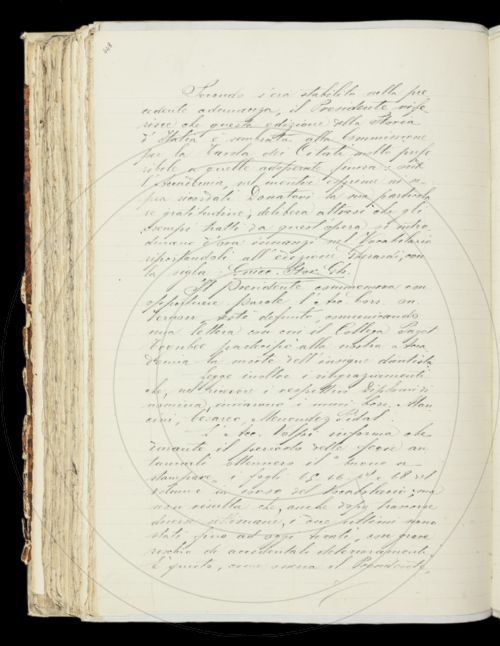 Secondo s'era stabilito nella pre
cedente adunanza, il Presidente rife
risce che questa edizione della Storia
d'Italia è sembrata alla Commissione
per la Tavola dei Citati molto prefe
ribile a quelle adoperate finora: onde
l'Accademia, nel mentre esprime ai so
pra ricordati Donatori la sua particola
re gratitudine, delibera altresì che gli
esempi tratti da quest'opera si intro
ducano d'ora innanzi nel Vocabolario
riportandoli all'edizione Gherardi, con
la sigla: Guicc. Stor. Gh.
Il Presidente commemora con
opportune parole l'Acc. corr.
testé defunto, comunicando
una lettera con cui il Collega Paget
Toynbee partecipò alla nostra Acca
demia la morte dell'insigne dantista
Legge inoltre i ringraziamenti
che, nel ricevere i respettivi Diplomi di
nomina, inviarono i nuovi Corr. Man
cini, Cesareo, Menendez Pidal.
L'Acc. Volpi informa che
durante il periodo delle ferie au
tunnali ottennero il buono a
stampare i fogli 15, 16, 17 e 18 del
volume in corso del Vocabolario; ma
non risulta che, anche dopo trascorse
diverse settimane, i due ultimi siano
stati fino ad oggi tirati, con grave
rischio di accidentale deterioramento.
È questo, come osserva il Presidente,